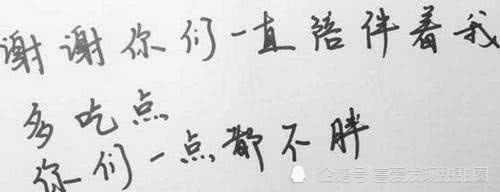 谢谢你们一直陪伴着我
多吃点
你们一点都不胖
企鹅号 喜爱发现甜甜圈